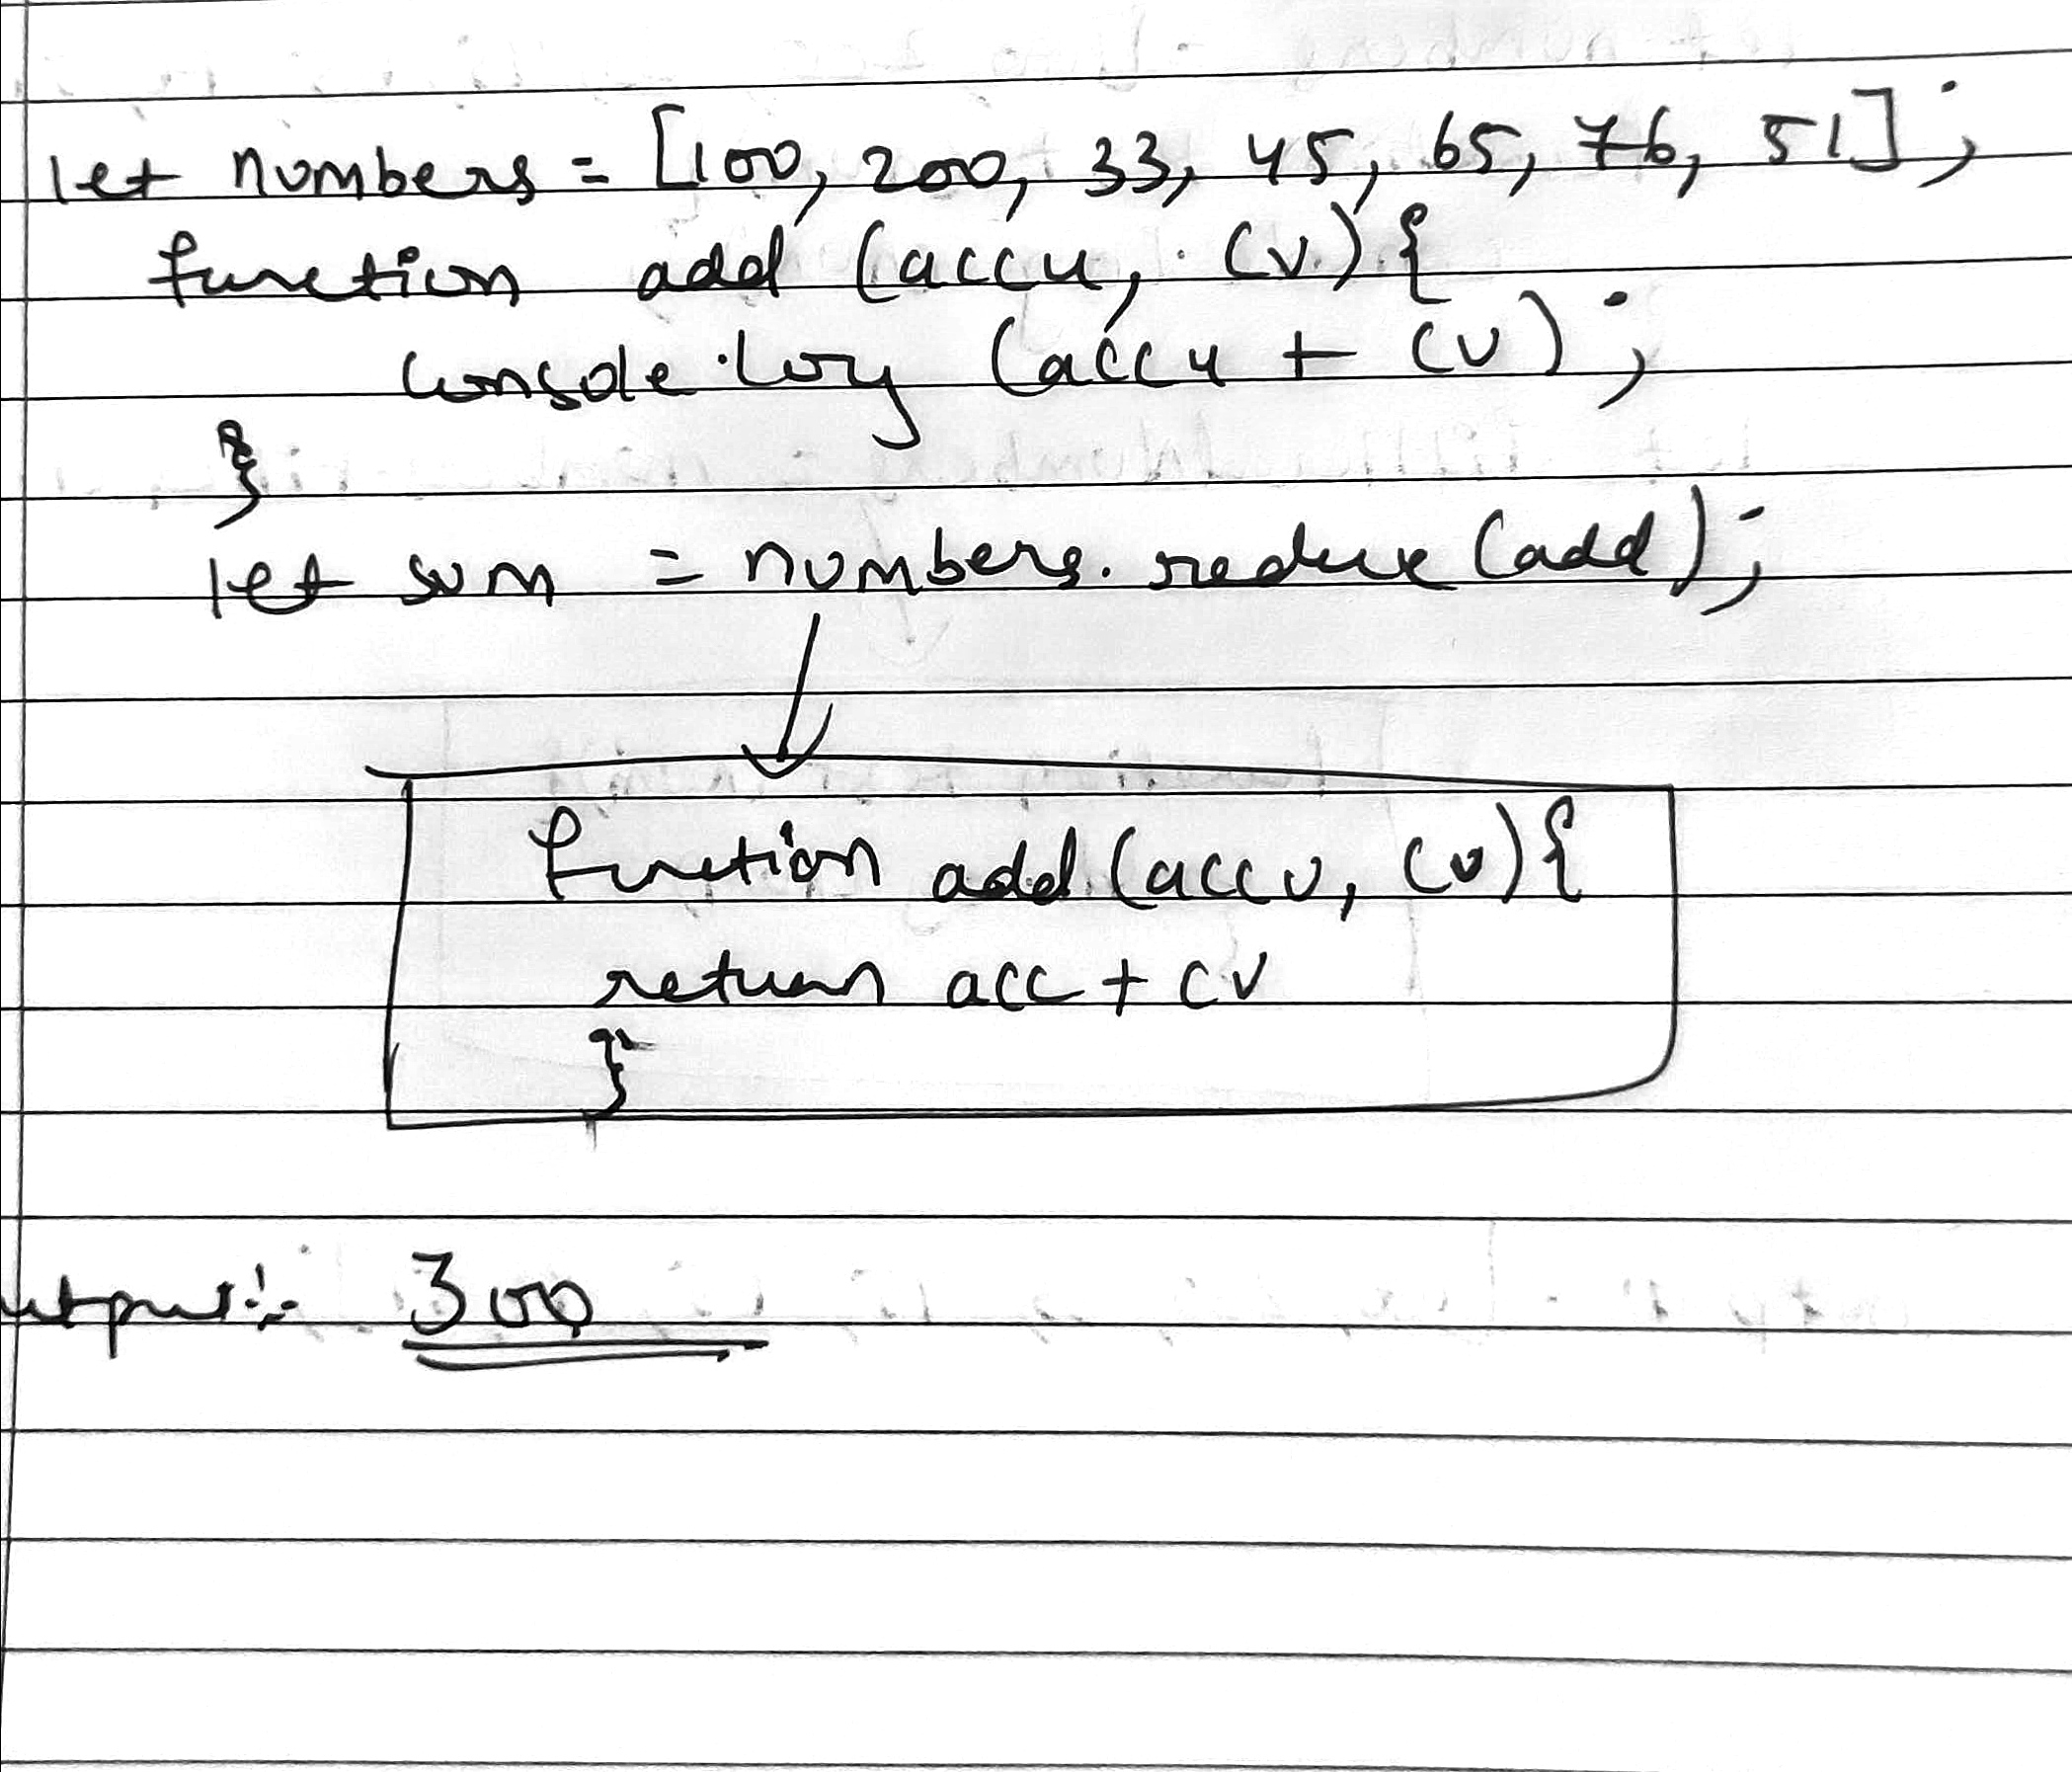 let numbers = [100, 200, 33, 45, 65, 76, 51];
function add (accu, cv) {
console.log (accu + cv);
}
let sum = numbers.reduce (add);
function add (accu, cv) {
return acc + cv
}
utput:- 300